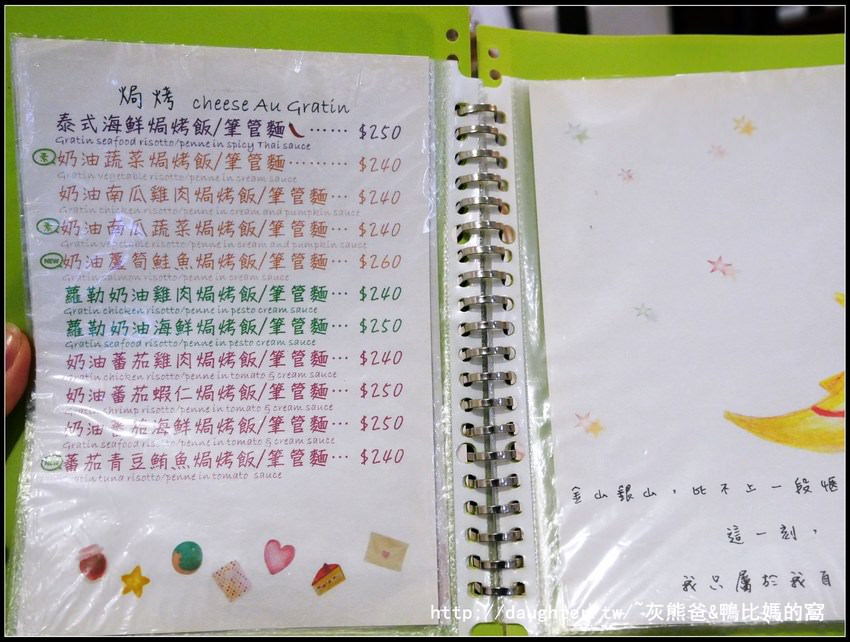 焗烤 cheese Au Gratin
泰式海鮮焗烤飯/筆管麵 ...... $250
Gratin seafood risotto/penne in spicy Thai sauce
素 奶油蔬菜焗烤飯/筆管麵 ......... $240
Gratin vegetable risotto/penne in cream sauce
奶油南瓜雞肉焗烤飯/筆管麵 ... $240
Gratin chicken risotto/penne in cream and pumpkin sauce
素 奶油南瓜蔬菜焗烤飯/筆管麵 ... $240
Gratin vegetable risotto/penne in cream and pumpkin sauce
NEW 奶油蘆筍鮭魚焗烤飯/筆管麵 ... $260
Gratin salmon risotto/penne in cream sauce
蘿勒奶油雞肉焗烤飯/筆管麵 ... $240
Gratin chicken risotto/penne in pesto cream sauce
蘿勒奶油海鮮焗烤飯/筆管麵 ... $250
Gratin seafood risotto/penne in pesto cream sauce
奶油蕃茄雞肉焗烤飯/筆管麵 ... $240
Gratin chicken risotto/penne in tomato & cream sauce
奶油蕃茄蝦仁焗烤飯/筆管麵 ... $250
Gratin shrimp risotto/penne in tomato & cream sauce
奶油蕃茄海鮮焗烤飯/筆管麵 ... $250
Gratin seafood risotto/penne in tomato & cream sauce
蕃茄青豆鮪魚焗烤飯/筆管麵 ... $240
Gratin tuna risotto/penne in tomato sauce
金山銀山，比不上一段愜
這一刻，
我只屬於我自
http://daughter.tw/~灰熊爸&鴨比媽的窩